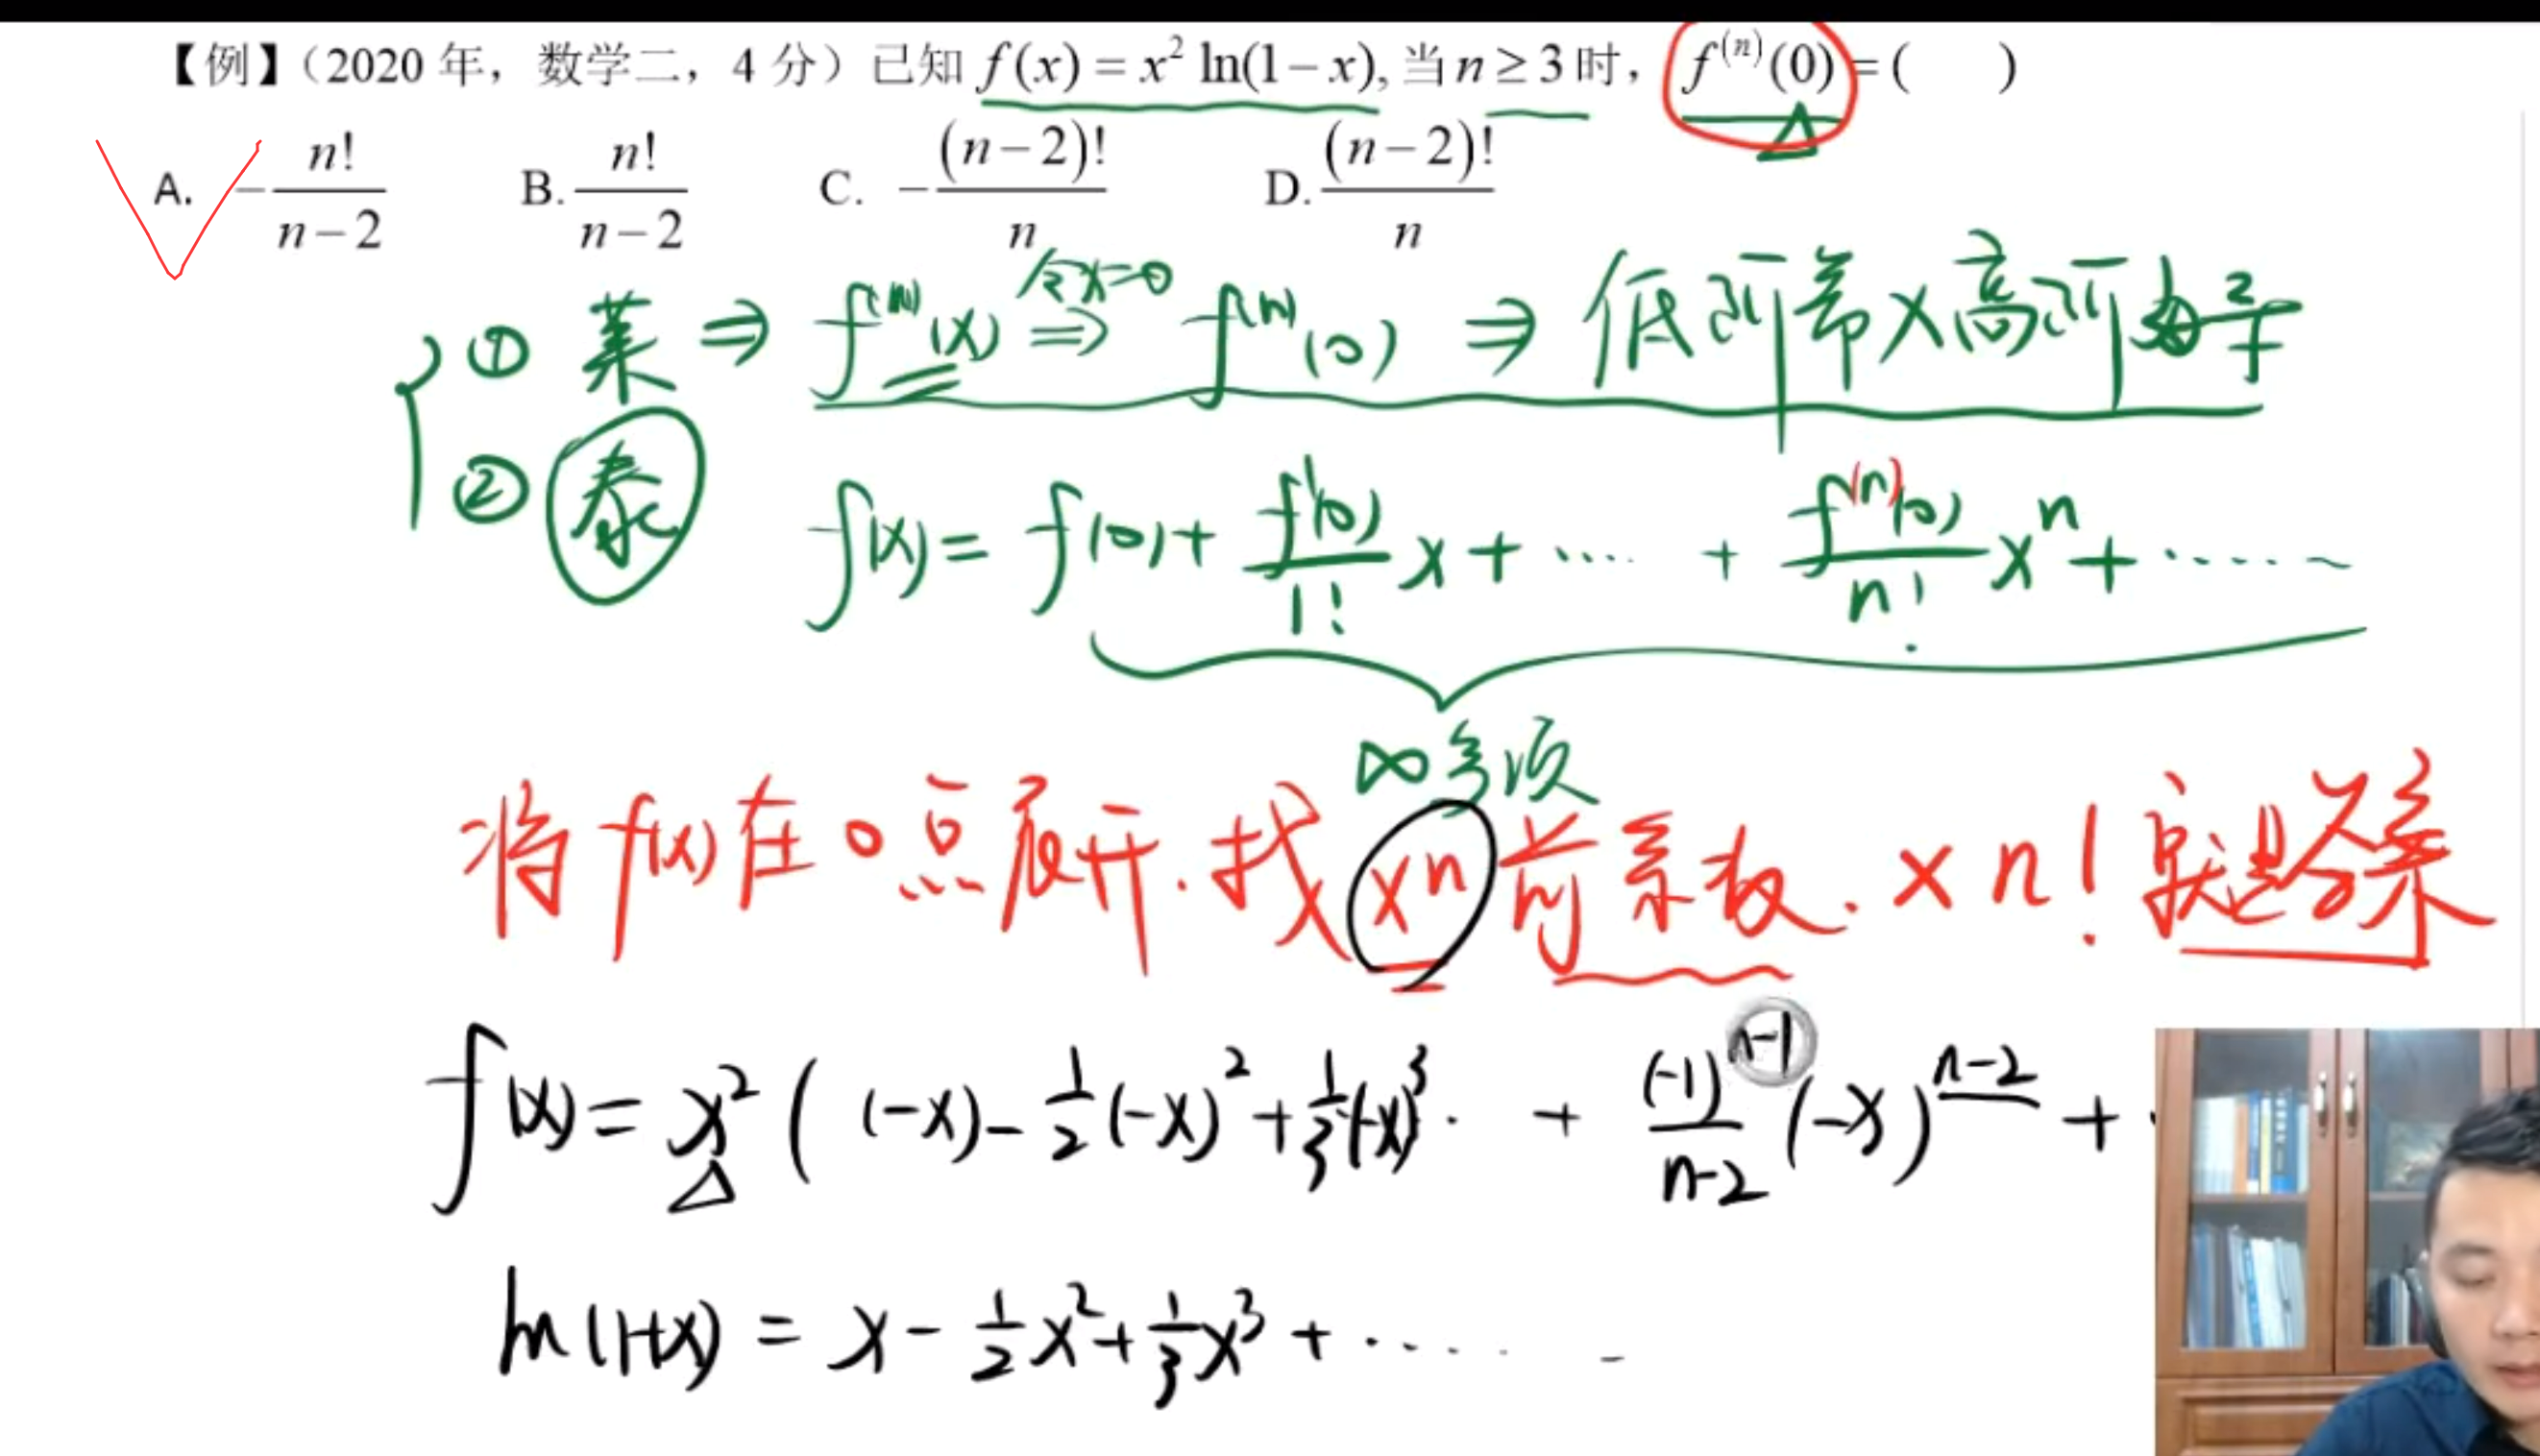 【例】（2020 年，数学二，4 分）已知 f(x) = x² ln(1−x), 当 n ≥ 3 时， f⁽ⁿ⁾(0) = (    )
A. −n!/(n−2)  B. n!/(n−2)  C. −(n−2)!/n  D. (n−2)!/n
① 莱 ⇒ f⁽ⁿ⁾(x) 令x=0 ⇒ f⁽ⁿ⁾(0) ⇒ 低阶幂×高阶
② 泰 f(x) = f(0) + f'(0)/1! x + ···· + f⁽ⁿ⁾(0)/n! xⁿ + ······
∞多项
将 f(x) 在 0 点展开. 找 xⁿ 前系数. × n! 就是答案
f(x) = x² ( (−x) − 1/2 (−x)² + 1/3 (−x)³ · + (−1)ⁿ⁻¹/(n−2) (−x)ⁿ⁻² + ·
ln(1+x) = x − 1/2 x² + 1/3 x³ + ·····